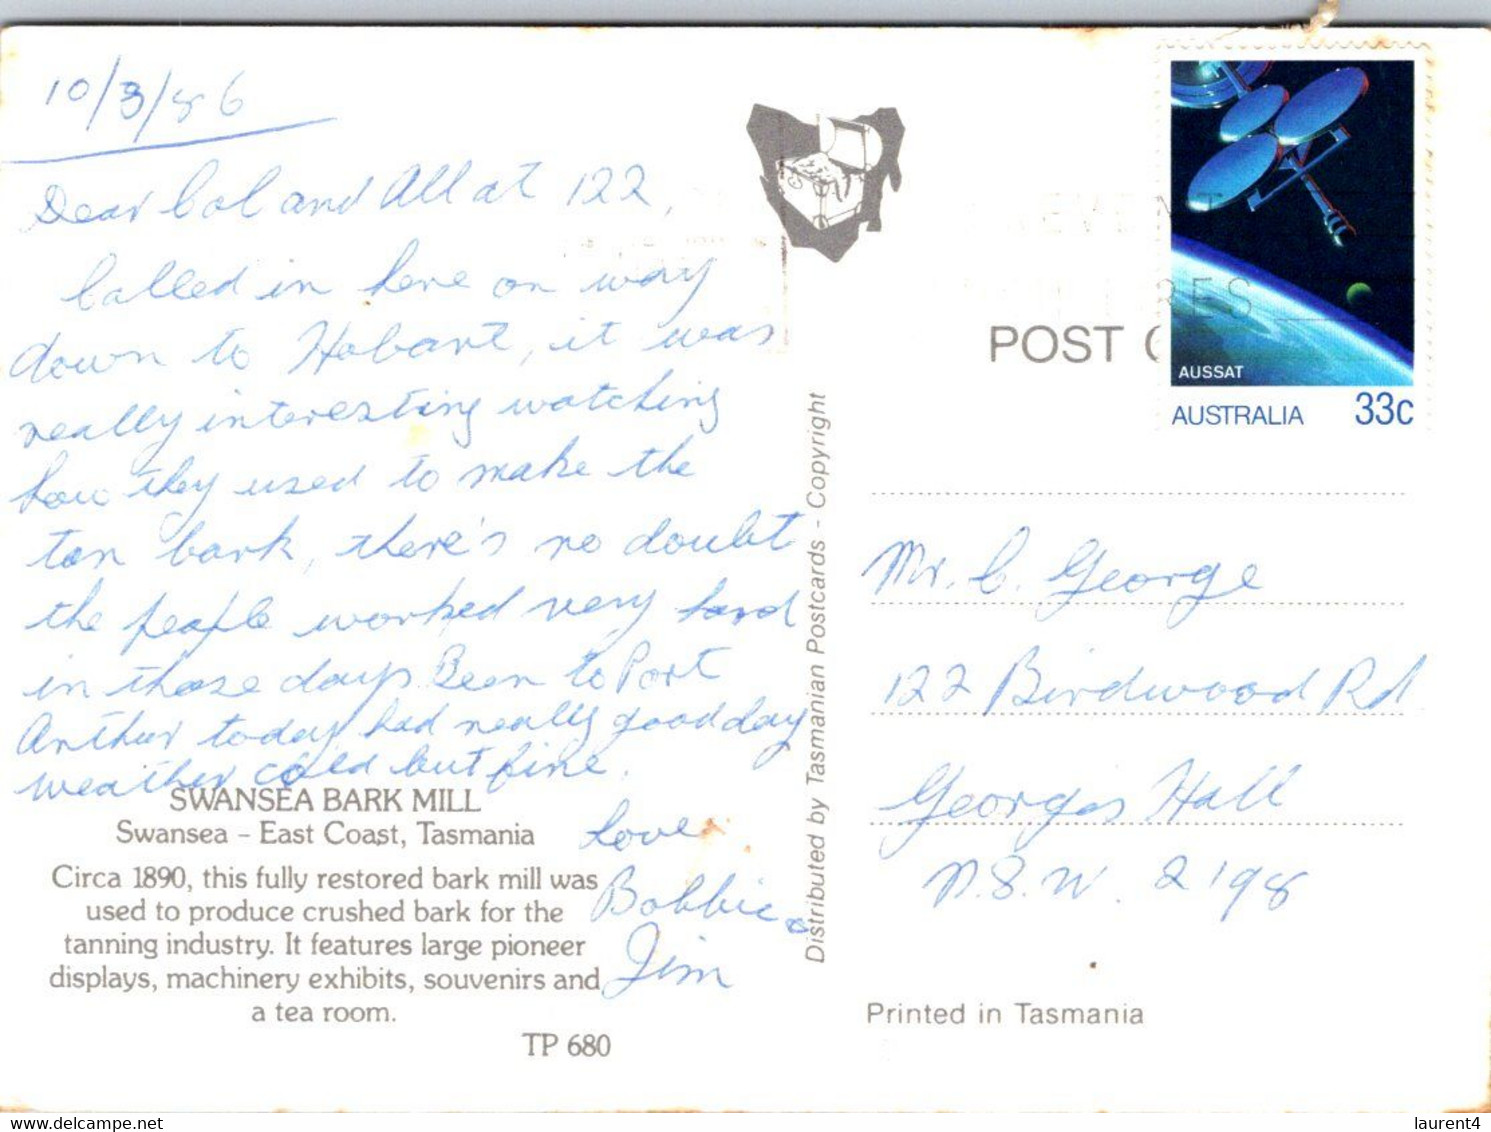 10/3/86
Dear Col and All at 122,
Called in here on way
down to Hobart, it was
really interesting watching
how they used to make the
tan bark, there's no doubt
the people worked very hard
in those days. Been to Port
Arthur today had really good day
weather cold but fine.
Love
Bobbie &
Jim
SWANSEA BARK MILL
Swansea – East Coast, Tasmania
Circa 1890, this fully restored bark mill was
used to produce crushed bark for the
tanning industry. It features large pioneer
displays, machinery exhibits, souvenirs and
a tea room.
TP 680
Distributed by Tasmanian Postcards - Copyright
POST C
AUSSAT
AUSTRALIA 33c
Mr. C. George
122 Birdwood Rd
Georges Hall
N.S.W. 2198
Printed in Tasmania
delcampe.net
laurent4